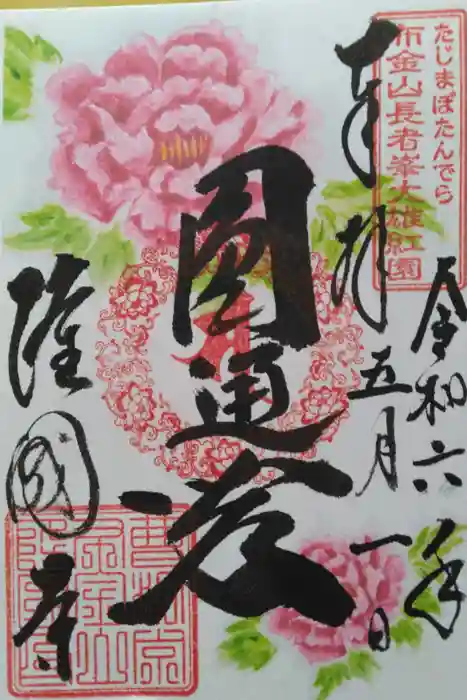 たじまぼたんでら
布金山長者峯大雄紅園
令和六年
奉拝五月一日
圓通
隆國寺
曹洞宗
布金山